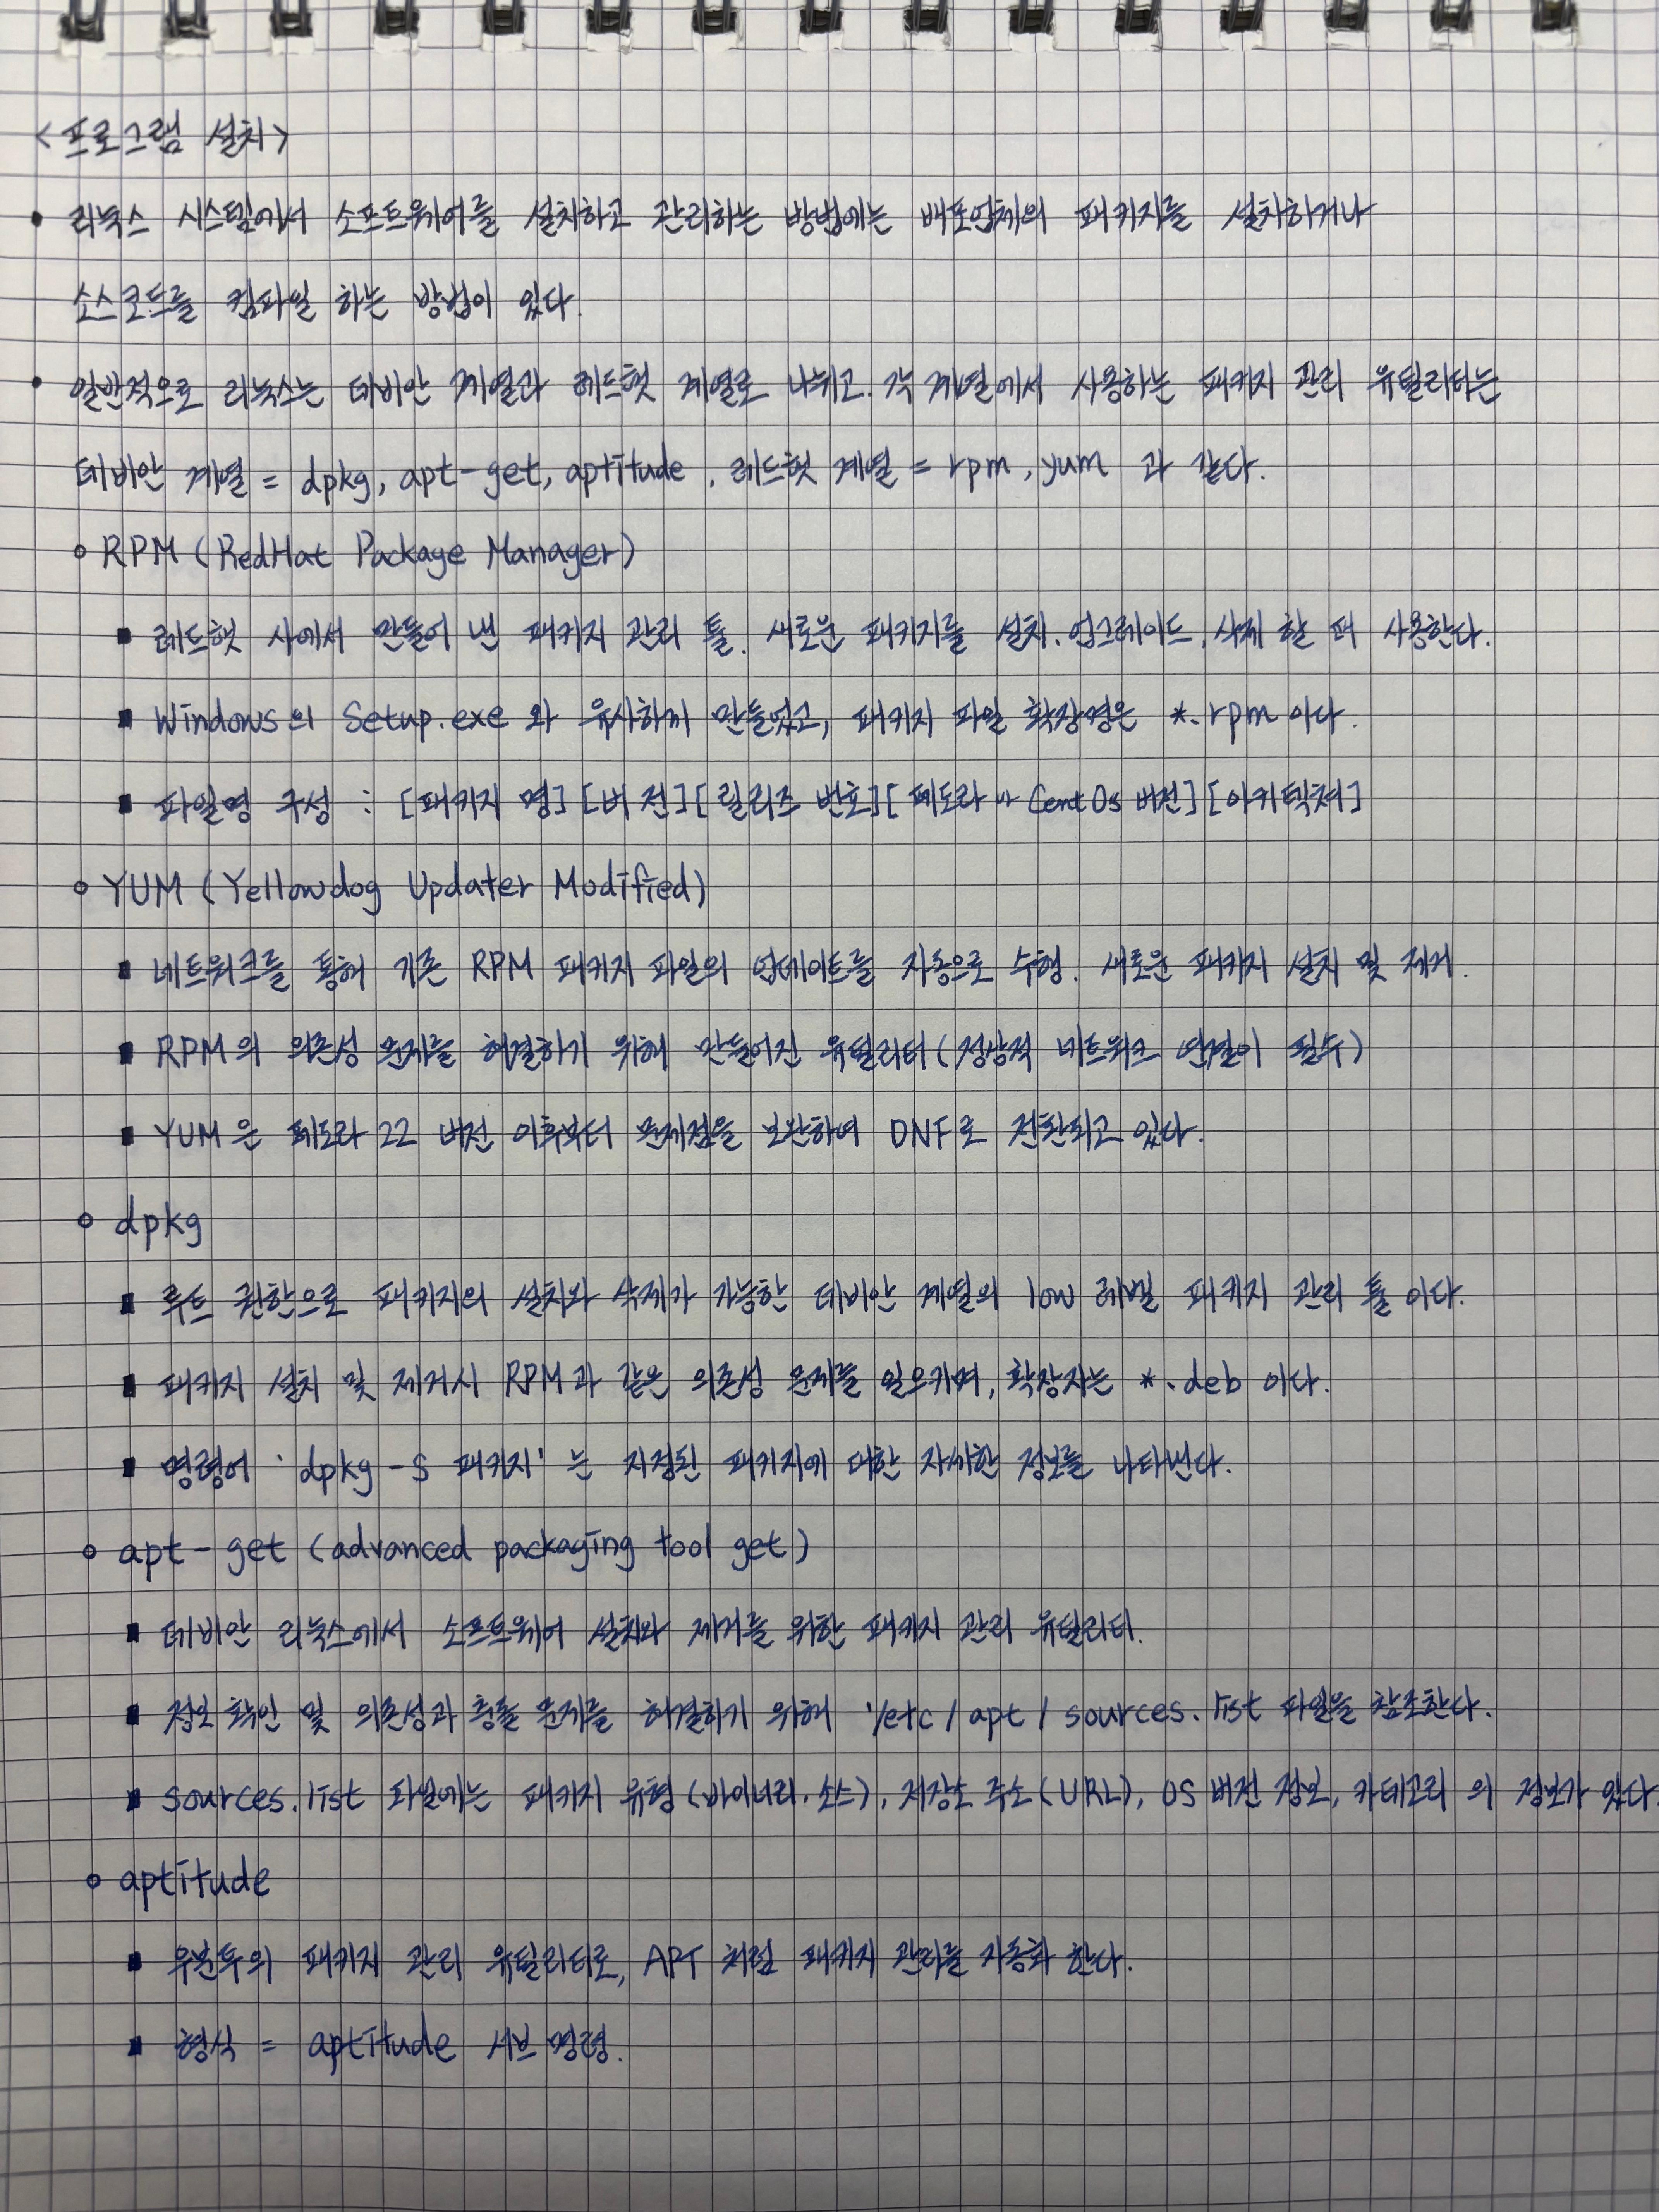 <프로그램 설치>
• 리눅스 시스템에서 소프트웨어를 설치하고 관리하는 방법에는 배포업체의 패키지를 설치하거나
소스코드를 컴파일 하는 방법이 있다.
• 일반적으로 리눅스는 데비안 계열과 레드햇 계열로 나뉘고. 각 계열에서 사용하는 패키지 관리 유틸리티는
데비안 계열 = dpkg, apt-get, aptitude, 레드햇 계열 = rpm, yum 과 같다.
◦ RPM (RedHat Package Manager)
▪ 레드햇 사에서 만들어 낸 패키지 관리 툴. 새로운 패키지를 설치. 업그레이드, 삭제 할 때 사용한다.
▪ Windows의 Setup.exe 와 유사하게 만들었고, 패키지 파일 확장명은 *.rpm 이다.
▪ 파일명 구성 : [패키지 명] [버전] [릴리즈 번호] [페도라 or CentOs 버전] [아키텍쳐]
◦ YUM (Yellowdog Updater Modified)
▪ 네트워크를 통해 기존 RPM 패키지 파일의 업데이트를 자동으로 수행. 새로운 패키지 설치 및 제거.
▪ RPM의 의존성 문제를 해결하기 위해 만들어진 유틸리티 (정상적 네트워크 연결이 필수)
▪ YUM은 페도라 22 버전 이후부터 문제점을 보완하여 DNF로 전환되고 있다.
◦ dpkg
▪ 루트 권한으로 패키지의 설치와 삭제가 가능한 데비안 계열의 low 레벨 패키지 관리 툴 이다.
▪ 패키지 설치 및 제거시 RPM과 같은 의존성 문제를 일으키며, 확장자는 *.deb 이다.
▪ 명령어 'dpkg -s 패키지' 는 지정된 패키지에 대한 자세한 정보를 나타낸다.
◦ apt-get (advanced packaging tool get)
▪ 데비안 리눅스에서 소프트웨어 설치와 제거를 위한 패키지 관리 유틸리티.
▪ 정보 확인 및 의존성과 충돌 문제를 해결하기 위해 '/etc/apt/sources.list 파일을 참조한다.
▪ sources.list 파일에는 패키지 유형 (바이너리. 소스), 저장소 주소 (URL), OS 버전 정보, 카테고리 의 정보가 있다
◦ aptitude
▪ 우분투의 패키지 관리 유틸리티로, APT 처럼 패키지 관리를 자동화 한다.
▪ 형식 = aptitude 서브 명령.